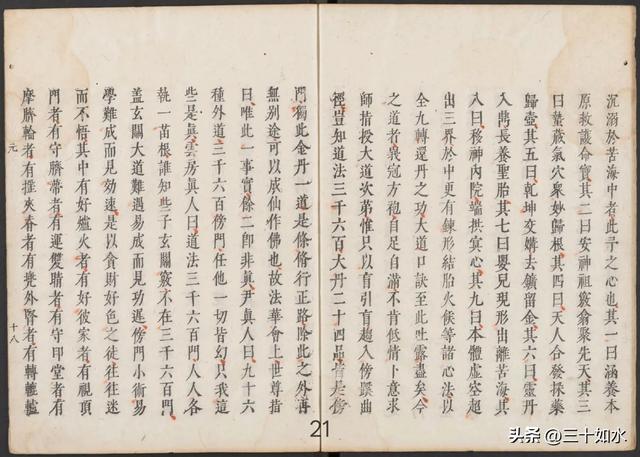 沉溺於苦海中者此予之心也其一曰涵養本
原救護命寶其二曰安神祖竅翕聚先天其三
曰蟄藏氣穴衆妙歸根其四曰天人合發採藥
歸壺其五曰乾坤交媾去鑛留金其六曰靈丹
入鼎長養聖胎其七曰嬰兒現形出離苦海其
八曰移神內院端拱冥心其九曰本體虛空超
出三界於中更有鍊形結胎火候等諸心法以
全九轉還丹之功大道口訣至此吐露盡矣今
之道者峩冠方袍自足自滿不肯低情下意求
師指授大道次第惟只以盲引盲趨入傍蹊曲
徑豈知道法三千六百大丹二十四品皆是傍
門獨此金丹一道是條脩行正路除此之外再
無别途可以成仙作佛也故法華會上世尊指
曰唯此一事實餘二即非真尹真人曰九十六
種外道三千六百傍門任他一切皆幻只我這
些是真雲房真人曰道法三千六百門人人各
執一苗根誰知些子玄關竅不在三千六百門
盖玄關大道難遇易成而見功遲傍門小術易
學難成而見効速是以貪財好色之徒往往迷
而不悟其中有好爐火者有好彼家者有視頂
門者有守臍蒂者有運雙睛者有守甲堂者有
摩臍輪者有揺夾脊者有兠外腎者有轉轆轤
元 十八
21
头条 @三十如水